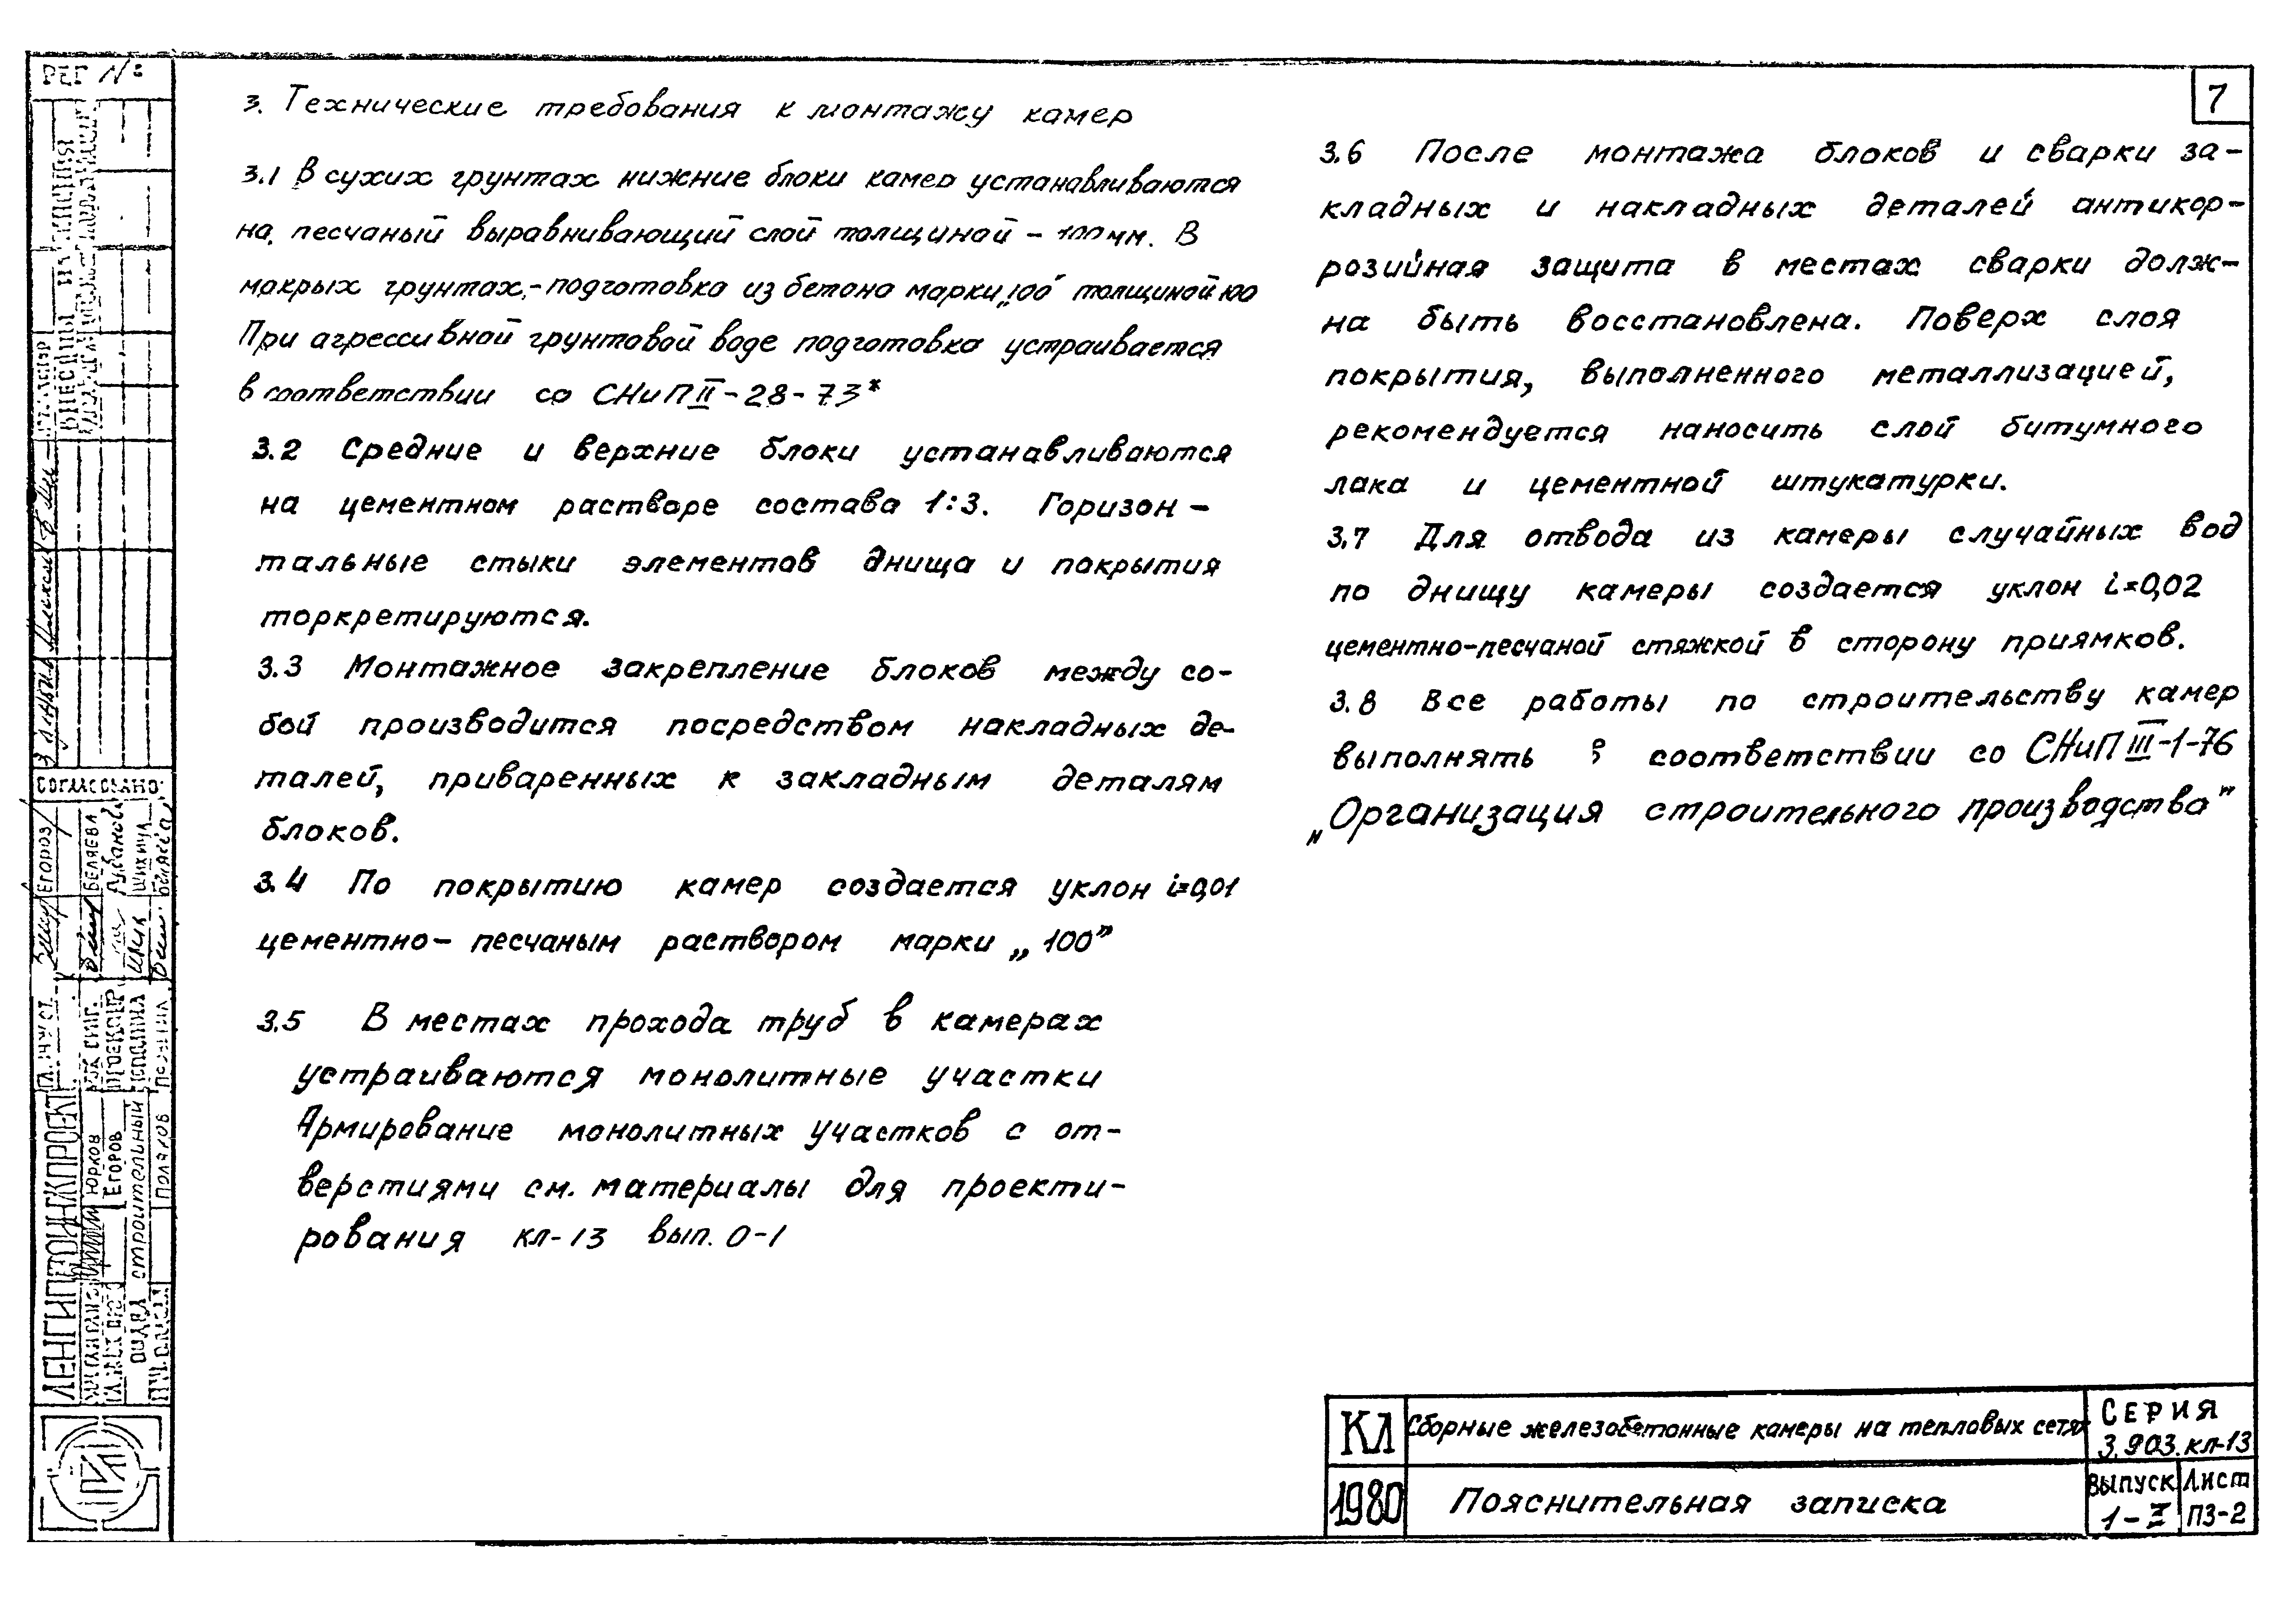 РЕГ №
7
3. Технические требования к монтажу камер
3.1 В сухих грунтах нижние блоки камер устанавливаются
на песчаный выравнивающий слой толщиной - 100 мм. В
мокрых грунтах,-подготовка из бетона марки „100" толщиной 100
При агрессивной грунтовой воде подготовка устраивается
в соответствии со СНиП II-28-73*
3.2 Средние и верхние блоки устанавливаются
на цементном растворе состава 1:3. Горизон-
тальные стыки элементов днища и покрытия
торкретируются.
3.3 Монтажное закрепление блоков между со-
бой производится посредством накладных де-
талей, приваренных к закладным деталям
блоков.
3.4 По покрытию камер создается уклон i=0,01
цементно-песчаным раствором марки „100”
3.5 В местах прохода труб в камерах
устраиваются монолитные участки
Армирование монолитных участков с от-
верстиями см. материалы для проекти-
рования кл-13 вып. 0-1
3.6 После монтажа блоков и сварки за-
кладных и накладных деталей антикор-
розийная защита в местах сварки долж-
на быть восстановлена. Поверх слоя
покрытия, выполненного металлизацией,
рекомендуется наносить слой битумного
лака и цементной штукатурки.
3.7 Для отвода из камеры случайных вод
по днищу камеры создается уклон i=0,02
цементно-песчаной стяжкой в сторону приямков.
3.8 Все работы по строительству камер
выполнять в соответствии со СНиП III-1-76
„Организация строительного производства”
КЛ
Сборные железобетонные камеры на тепловых сетях
Серия
3.903.кл-13
1980
Пояснительная записка
Выпуск
1-I
Лист
ПЗ-2
СОГЛАСОВАНО:
ЕГОРОВ
БЕЛЯЕВА
Рубанов
ШИХИНА
ЛЕНГИПРОИНЖПРОЕКТ
ЮРКОВ
ЕГОРОВ
строительный
Поляков